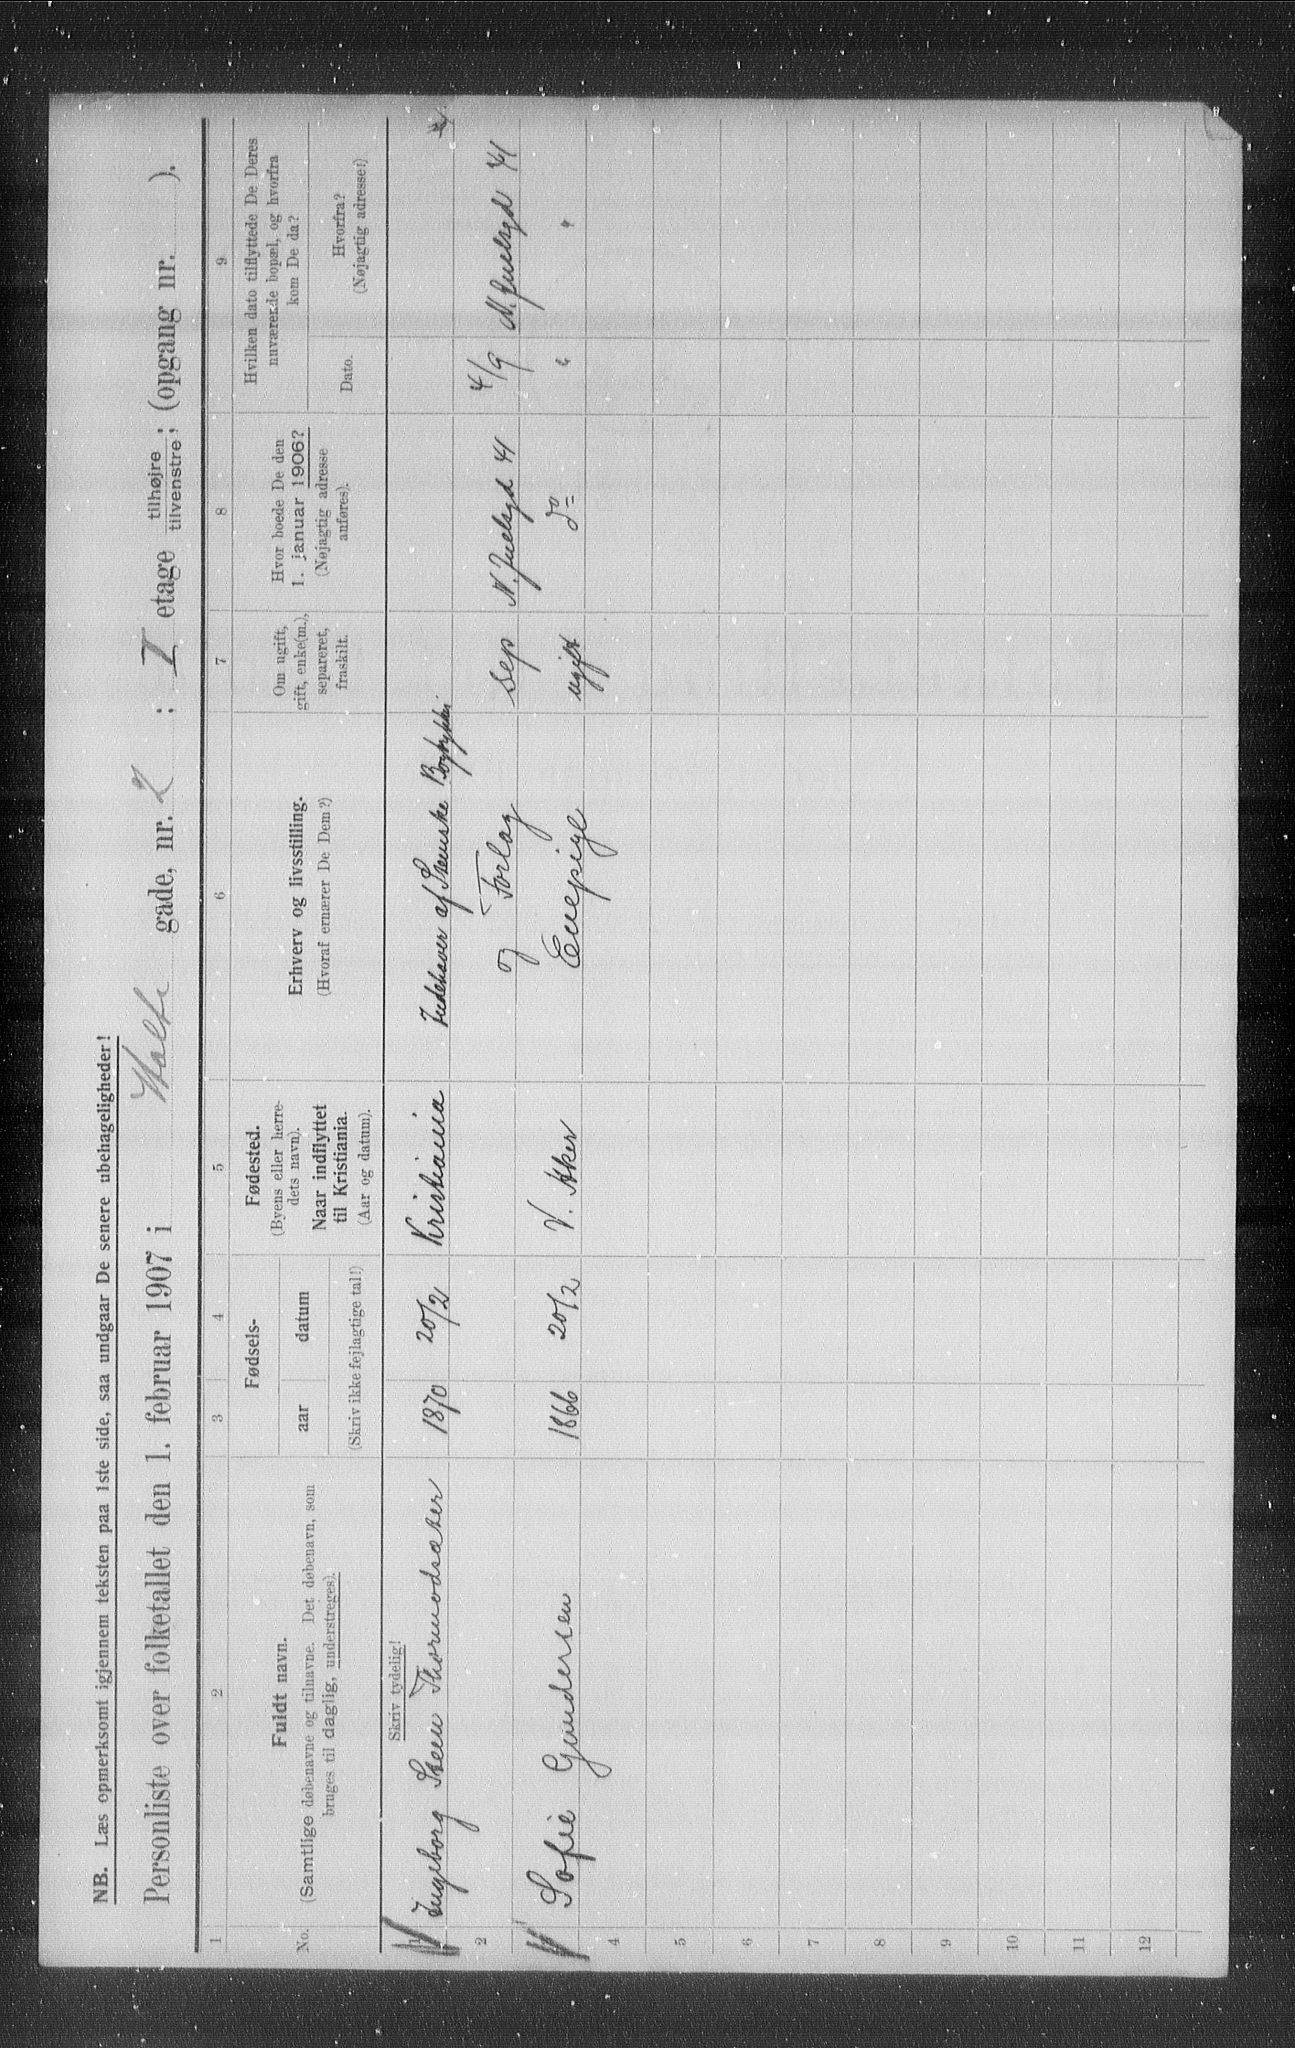 NB. Læs opmerksomt igjennem teksten paa 1ste side, saa undgaar De senere ubehageligheder!
Personliste over folketallet den 1. februar 1907 i Holte gade, nr. 2 ; I etage tilhøjre / tilvenstre ; (opgang nr. ).
1 2 3 4 5 6 7 8 9
No.
Fuldt navn.
(Samtlige døbenavne og tilnavne. Det døbenavn, som
bruges til daglig, understreges).
Fødsels-
aar datum
(Skriv ikke fejlagtige tal!)
Fødested.
(Byens eller herre-
dets navn).
Naar indflyttet
til Kristiania.
(Aar og datum).
Erhverv og livsstilling.
(Hvoraf ernærer De Dem?)
Om ugift,
gift, enke(m.),
separeret,
fraskilt.
Hvor boede De den
1. januar 1906?
(Nøjagtig adresse
anføres).
Hvilken dato tilflyttede De Deres
nuværende bopæl, og hvorfra
kom De da?
Dato.
Hvorfra?
(Nøjagtig adresse!)
Skriv tydelig!
1 Ingeborg Steen Thormodsæter 1870 20/2 Kristiania Indehaver af Steenske Bogtykkeri
2 og Forlag sep N. Juelsgd 41 4/9 N. Juelsgd 41
3 Sofie Gundersen 1866 20/2 V. Aker Enepige ugift do " "
4
5
6
7
8
9
10
11
12